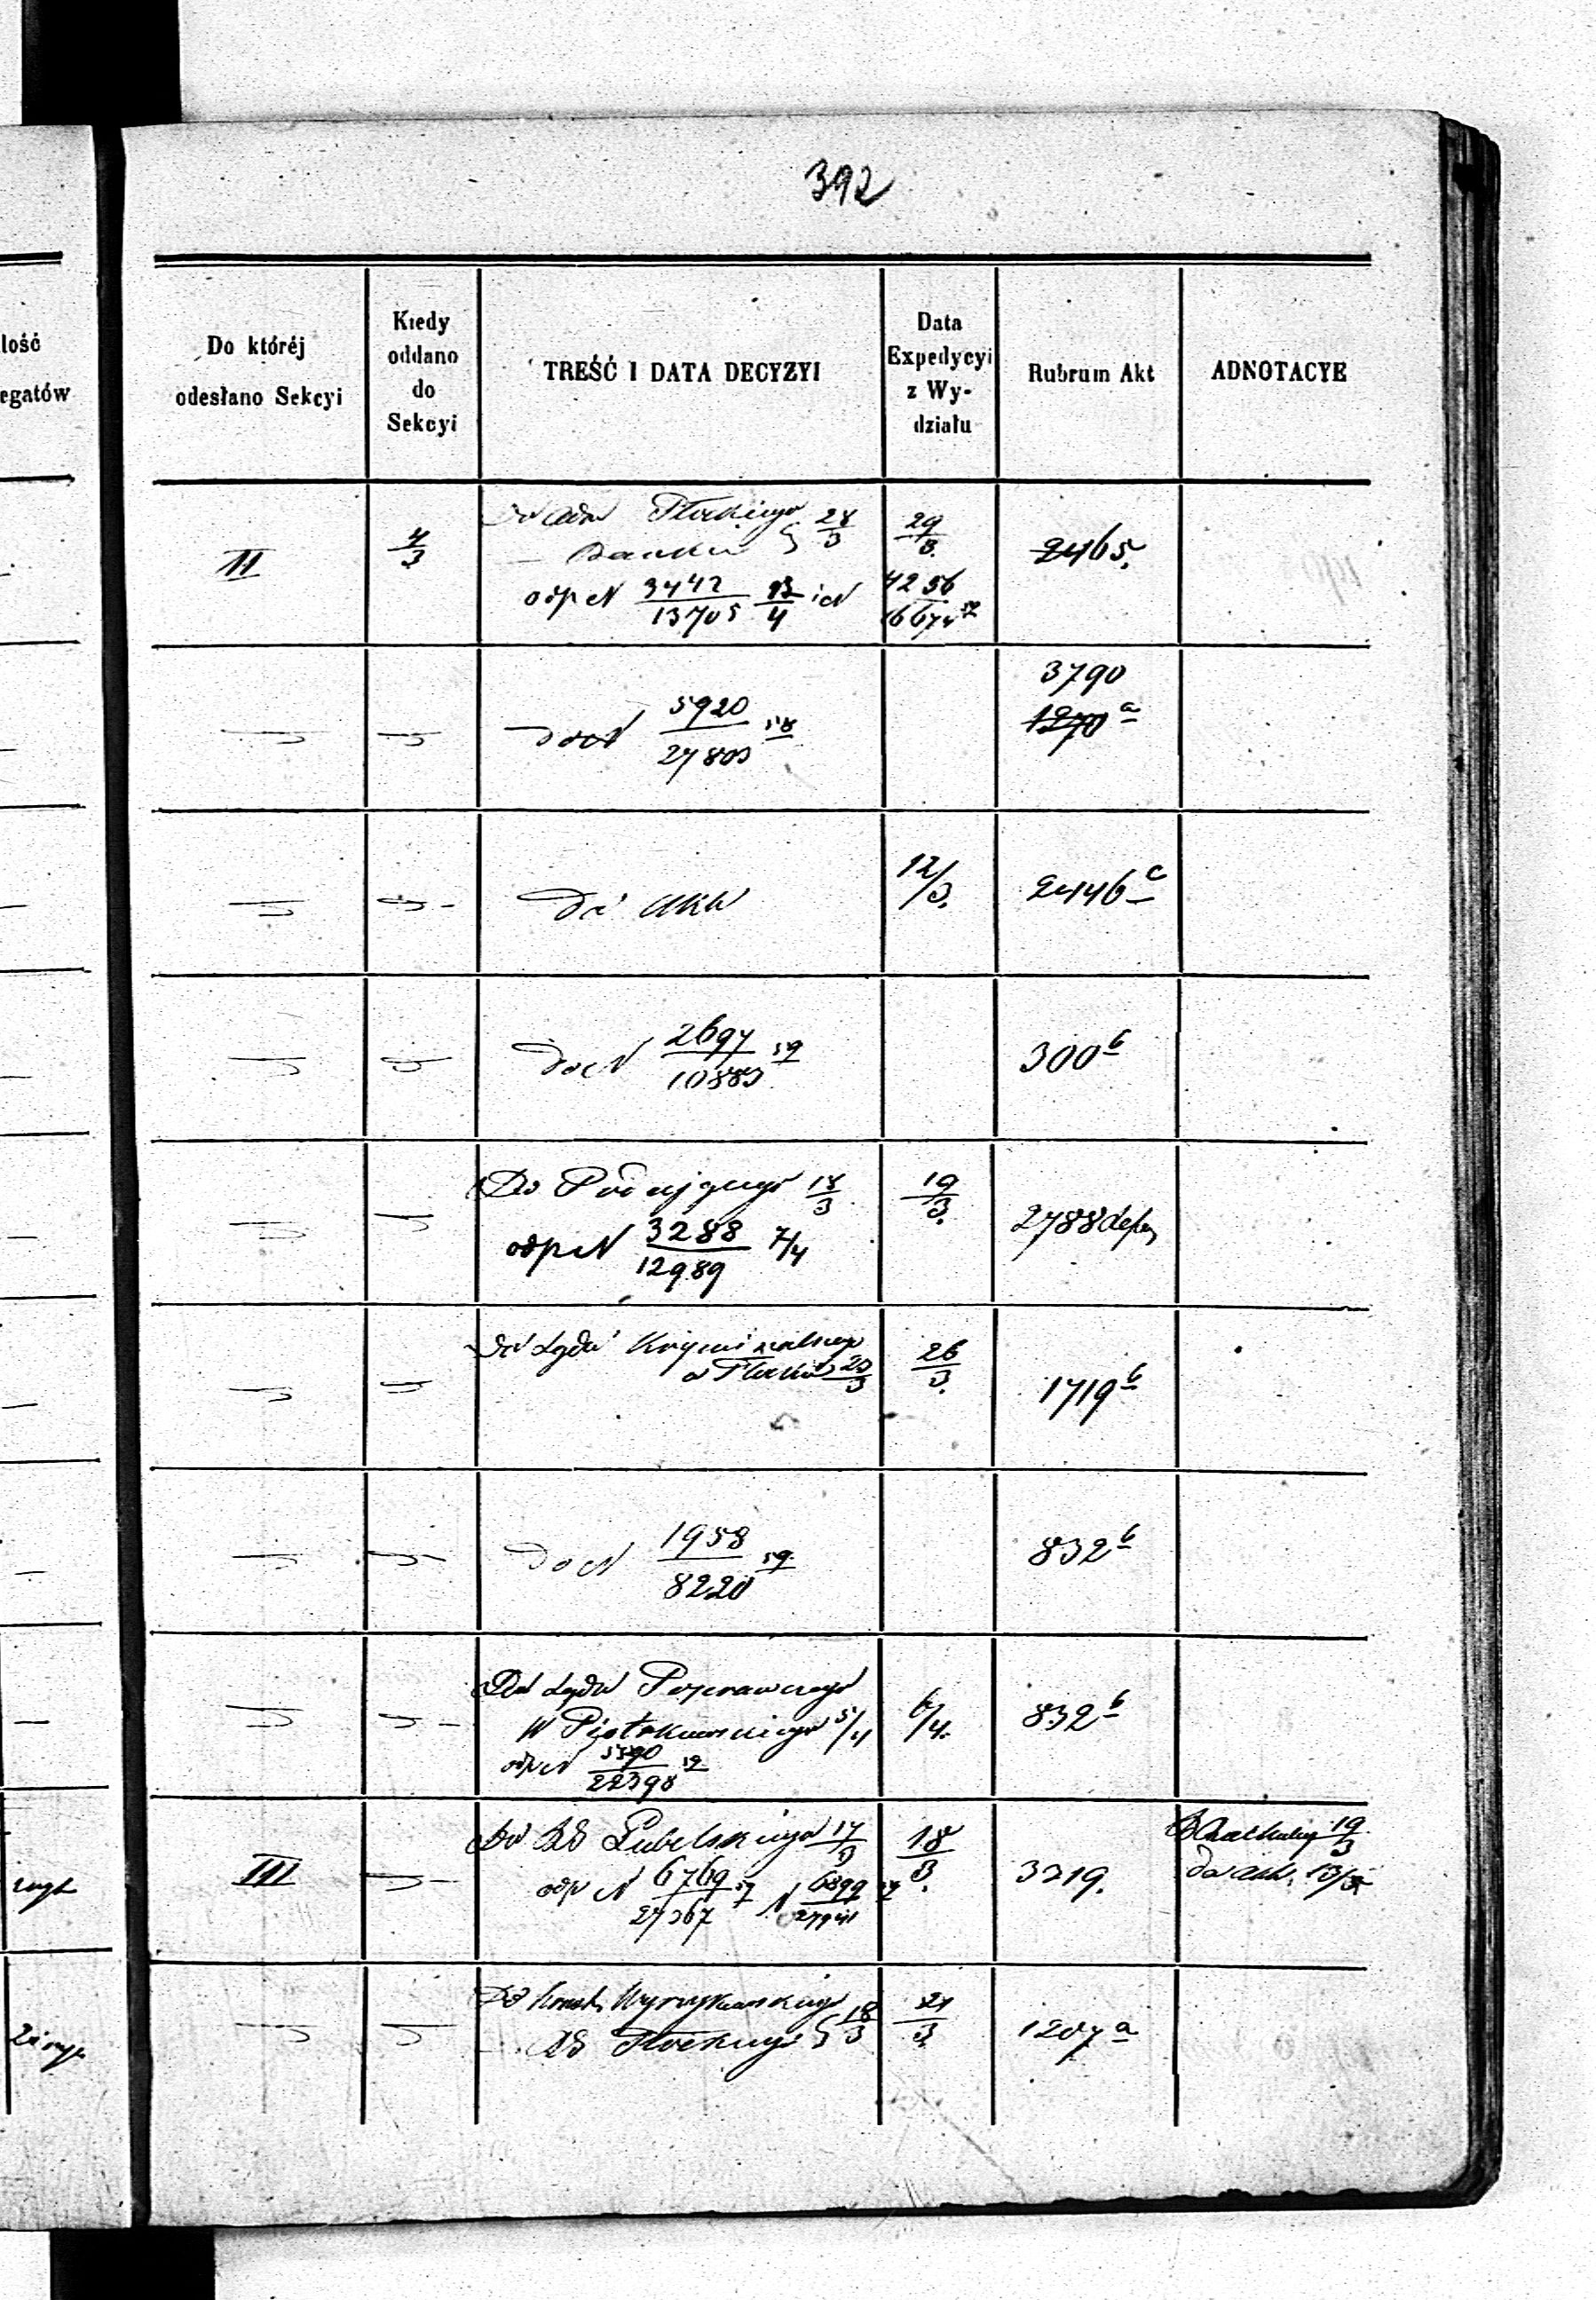 392
lość
egatów
Do któréj
odesłano Sekcyi
Kiedy
oddano
do
Sekcyi
TREŚĆ I DATA DECYZYI
Data
Expedycyi
z Wy-
działu
Rubrum Akt
ADNOTACYE
II
4/3
Płockiego 28/3
Banku
odp N 3442/13705 23/4 i N 4256/16674 57
29/3.
2465.
do N 5920/27803 58
3790
1270 a
Do Akt
12/3.
2446 c
do N 2697/10883 59
300 b
Do Proszącego 18/3
odp N 3288/12989 7/4
19/3.
2788 depos
Do Sądu Kryminalnego
w Płocku 23/3
26/3.
1719 b
do N 1958/8220 59
832 b
Do Sądu Poprawczego
W Piotrkowskiego 5/4
odp N 5390/22398 59
6/4.
832 b
III
Do Lubelskiego 17/3
odp N 6769/27367 57 N 6899/27941 57
18/3.
3219.
19/3
do akt. 13/
Do Wyrzykowskiego
Płockiego 18/3
21/3
1207 a